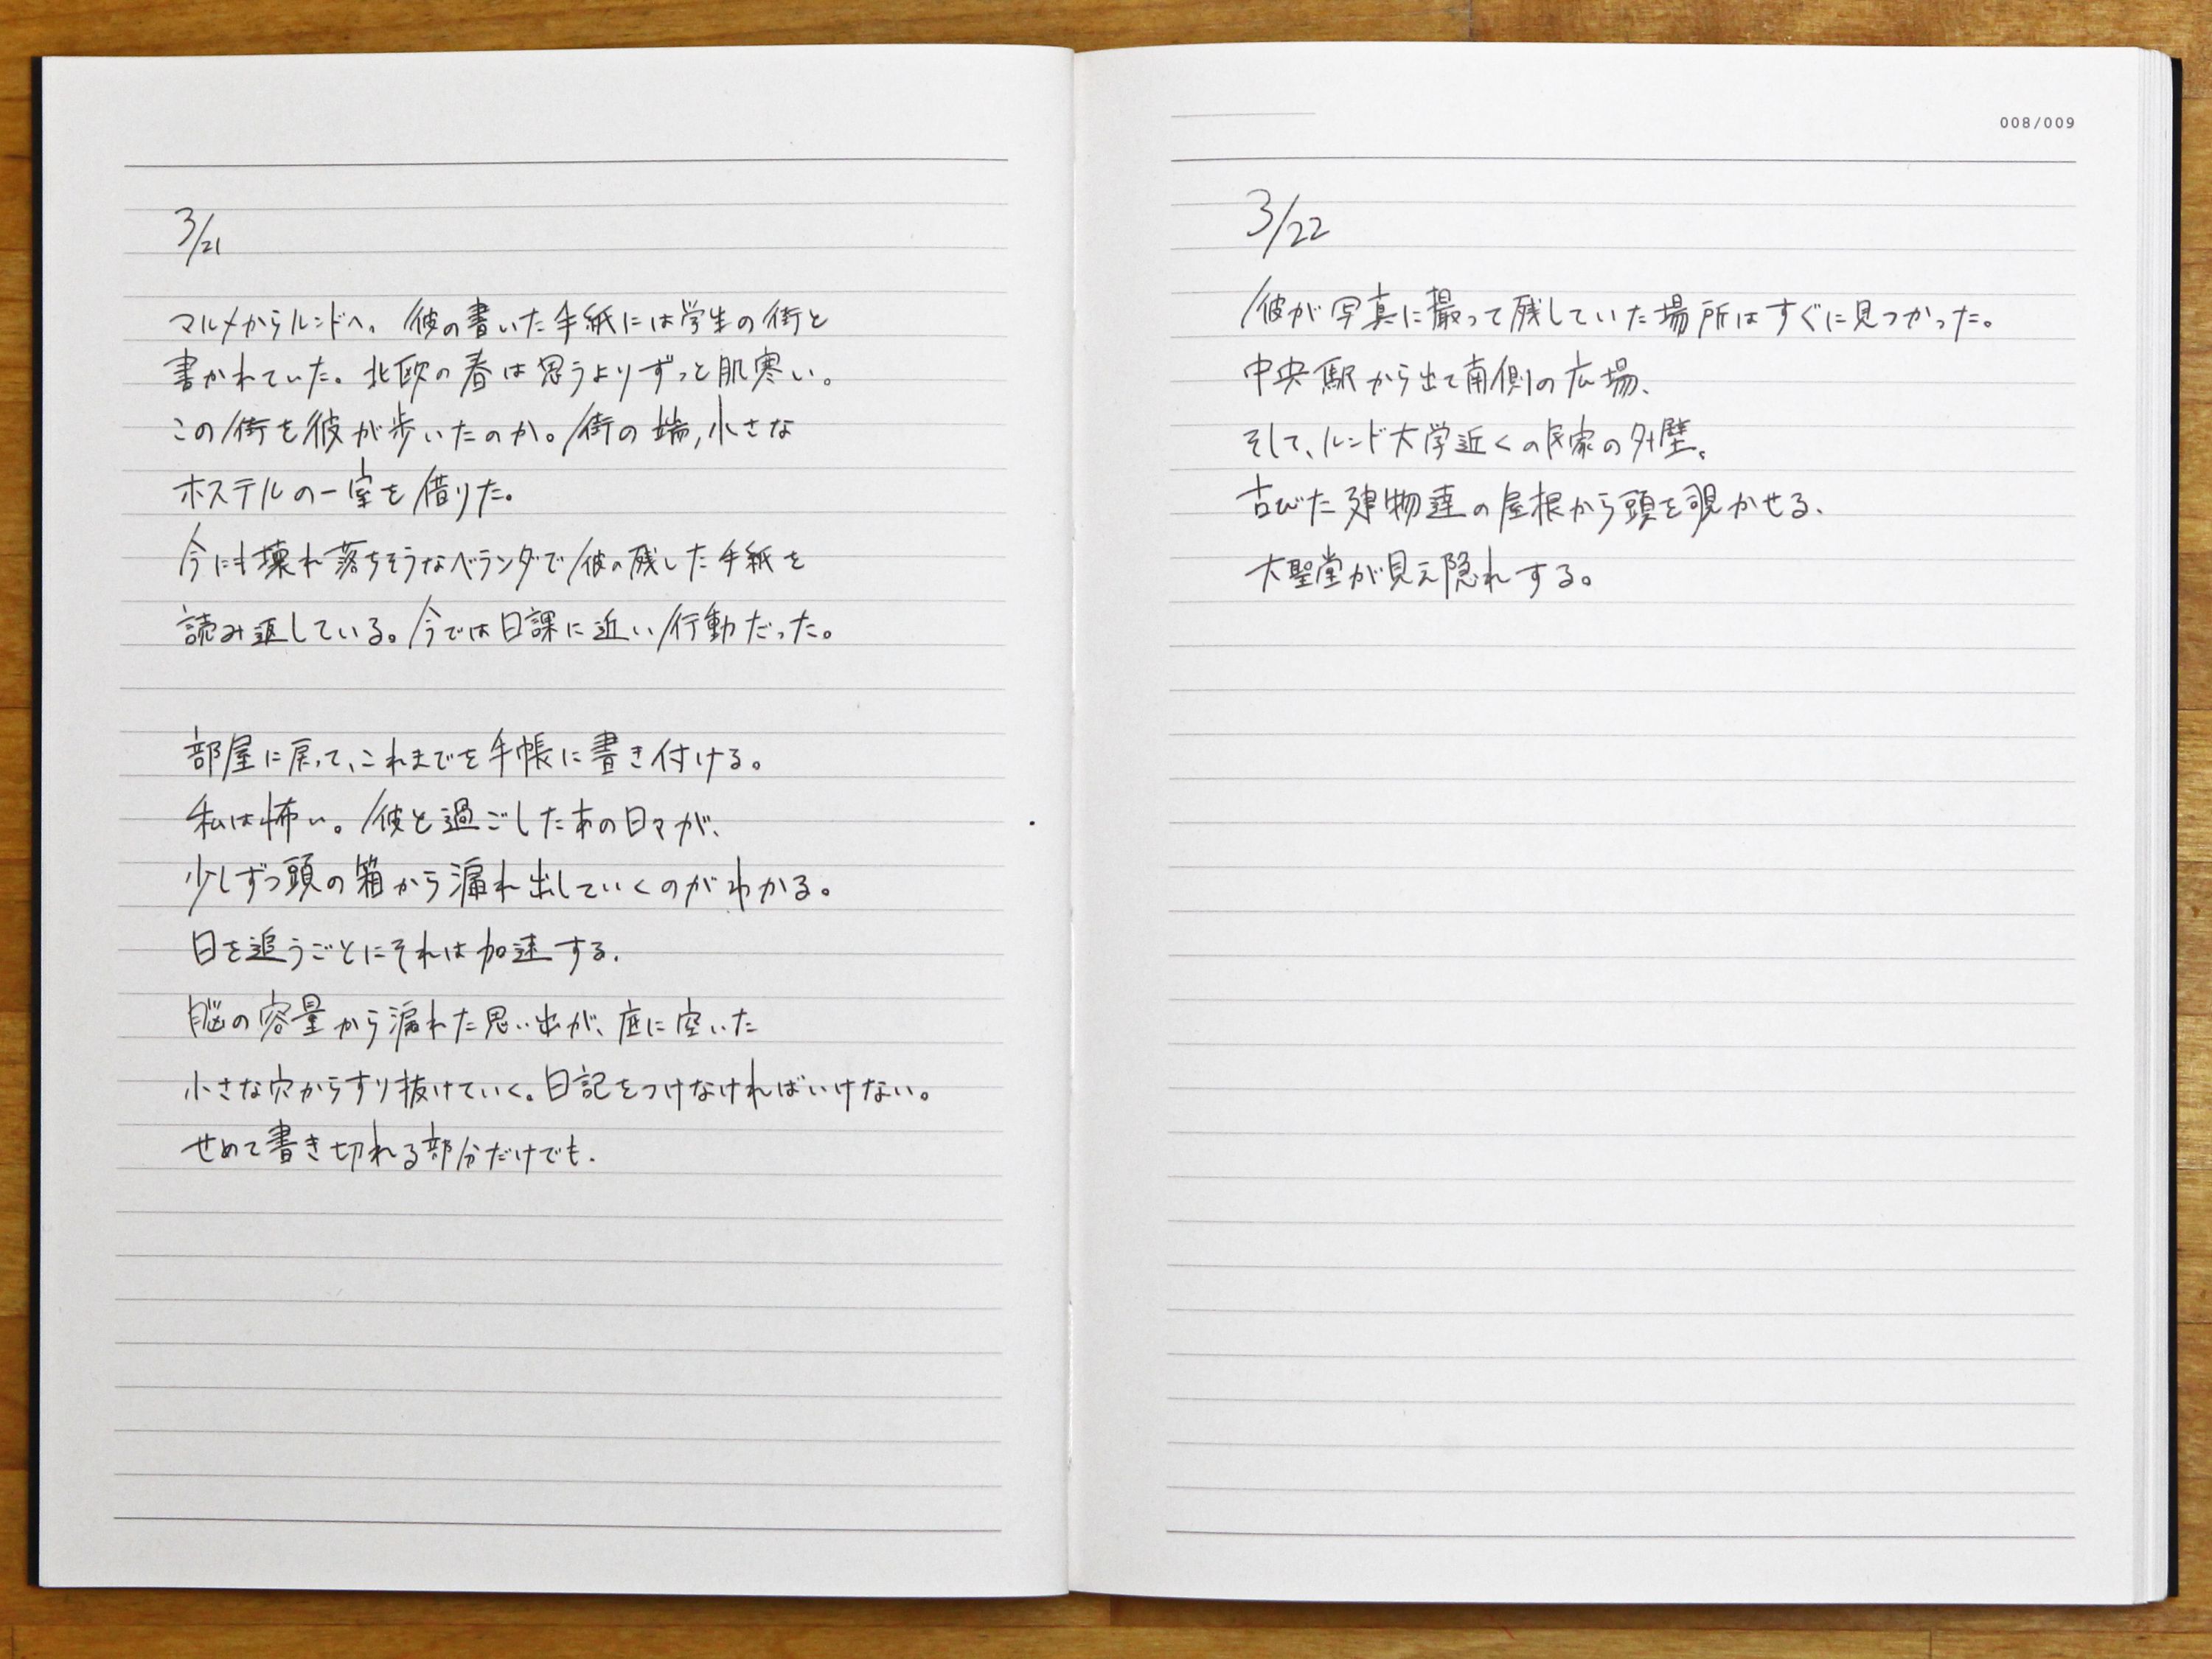 3/21
マルメからルンドへ。彼の書いた手紙には学生の街と
書かれていた。北欧の春は思うよりずっと肌寒い。
この街を彼が歩いたのか。街の端,小さな
ホステルの一室を借りた。
今にも壊れ落ちそうなベランダで彼の残した手紙を
読み返している。今では日課に近い行動だった。
部屋に戻って、これまでを手帳に書き付ける。
私は怖い。彼と過ごしたあの日々が、
少しずつ頭の箱から漏れ出していくのがわかる。
日を追うごとにそれは加速する.
脳の容量から漏れた思い出が、底に空いた
小さな穴からすり抜けていく。日記をつけなければいけない。
せめて書き切れる部分だけでも.
008/009
3/22
彼が写真に撮って残していた場所はすぐに見つかった。
中央駅から出て南側の広場、
そして、ルンド大学近くの民家の外壁。
古びた建物達の屋根から頭を覗かせる、
大聖堂が見え隠れする。